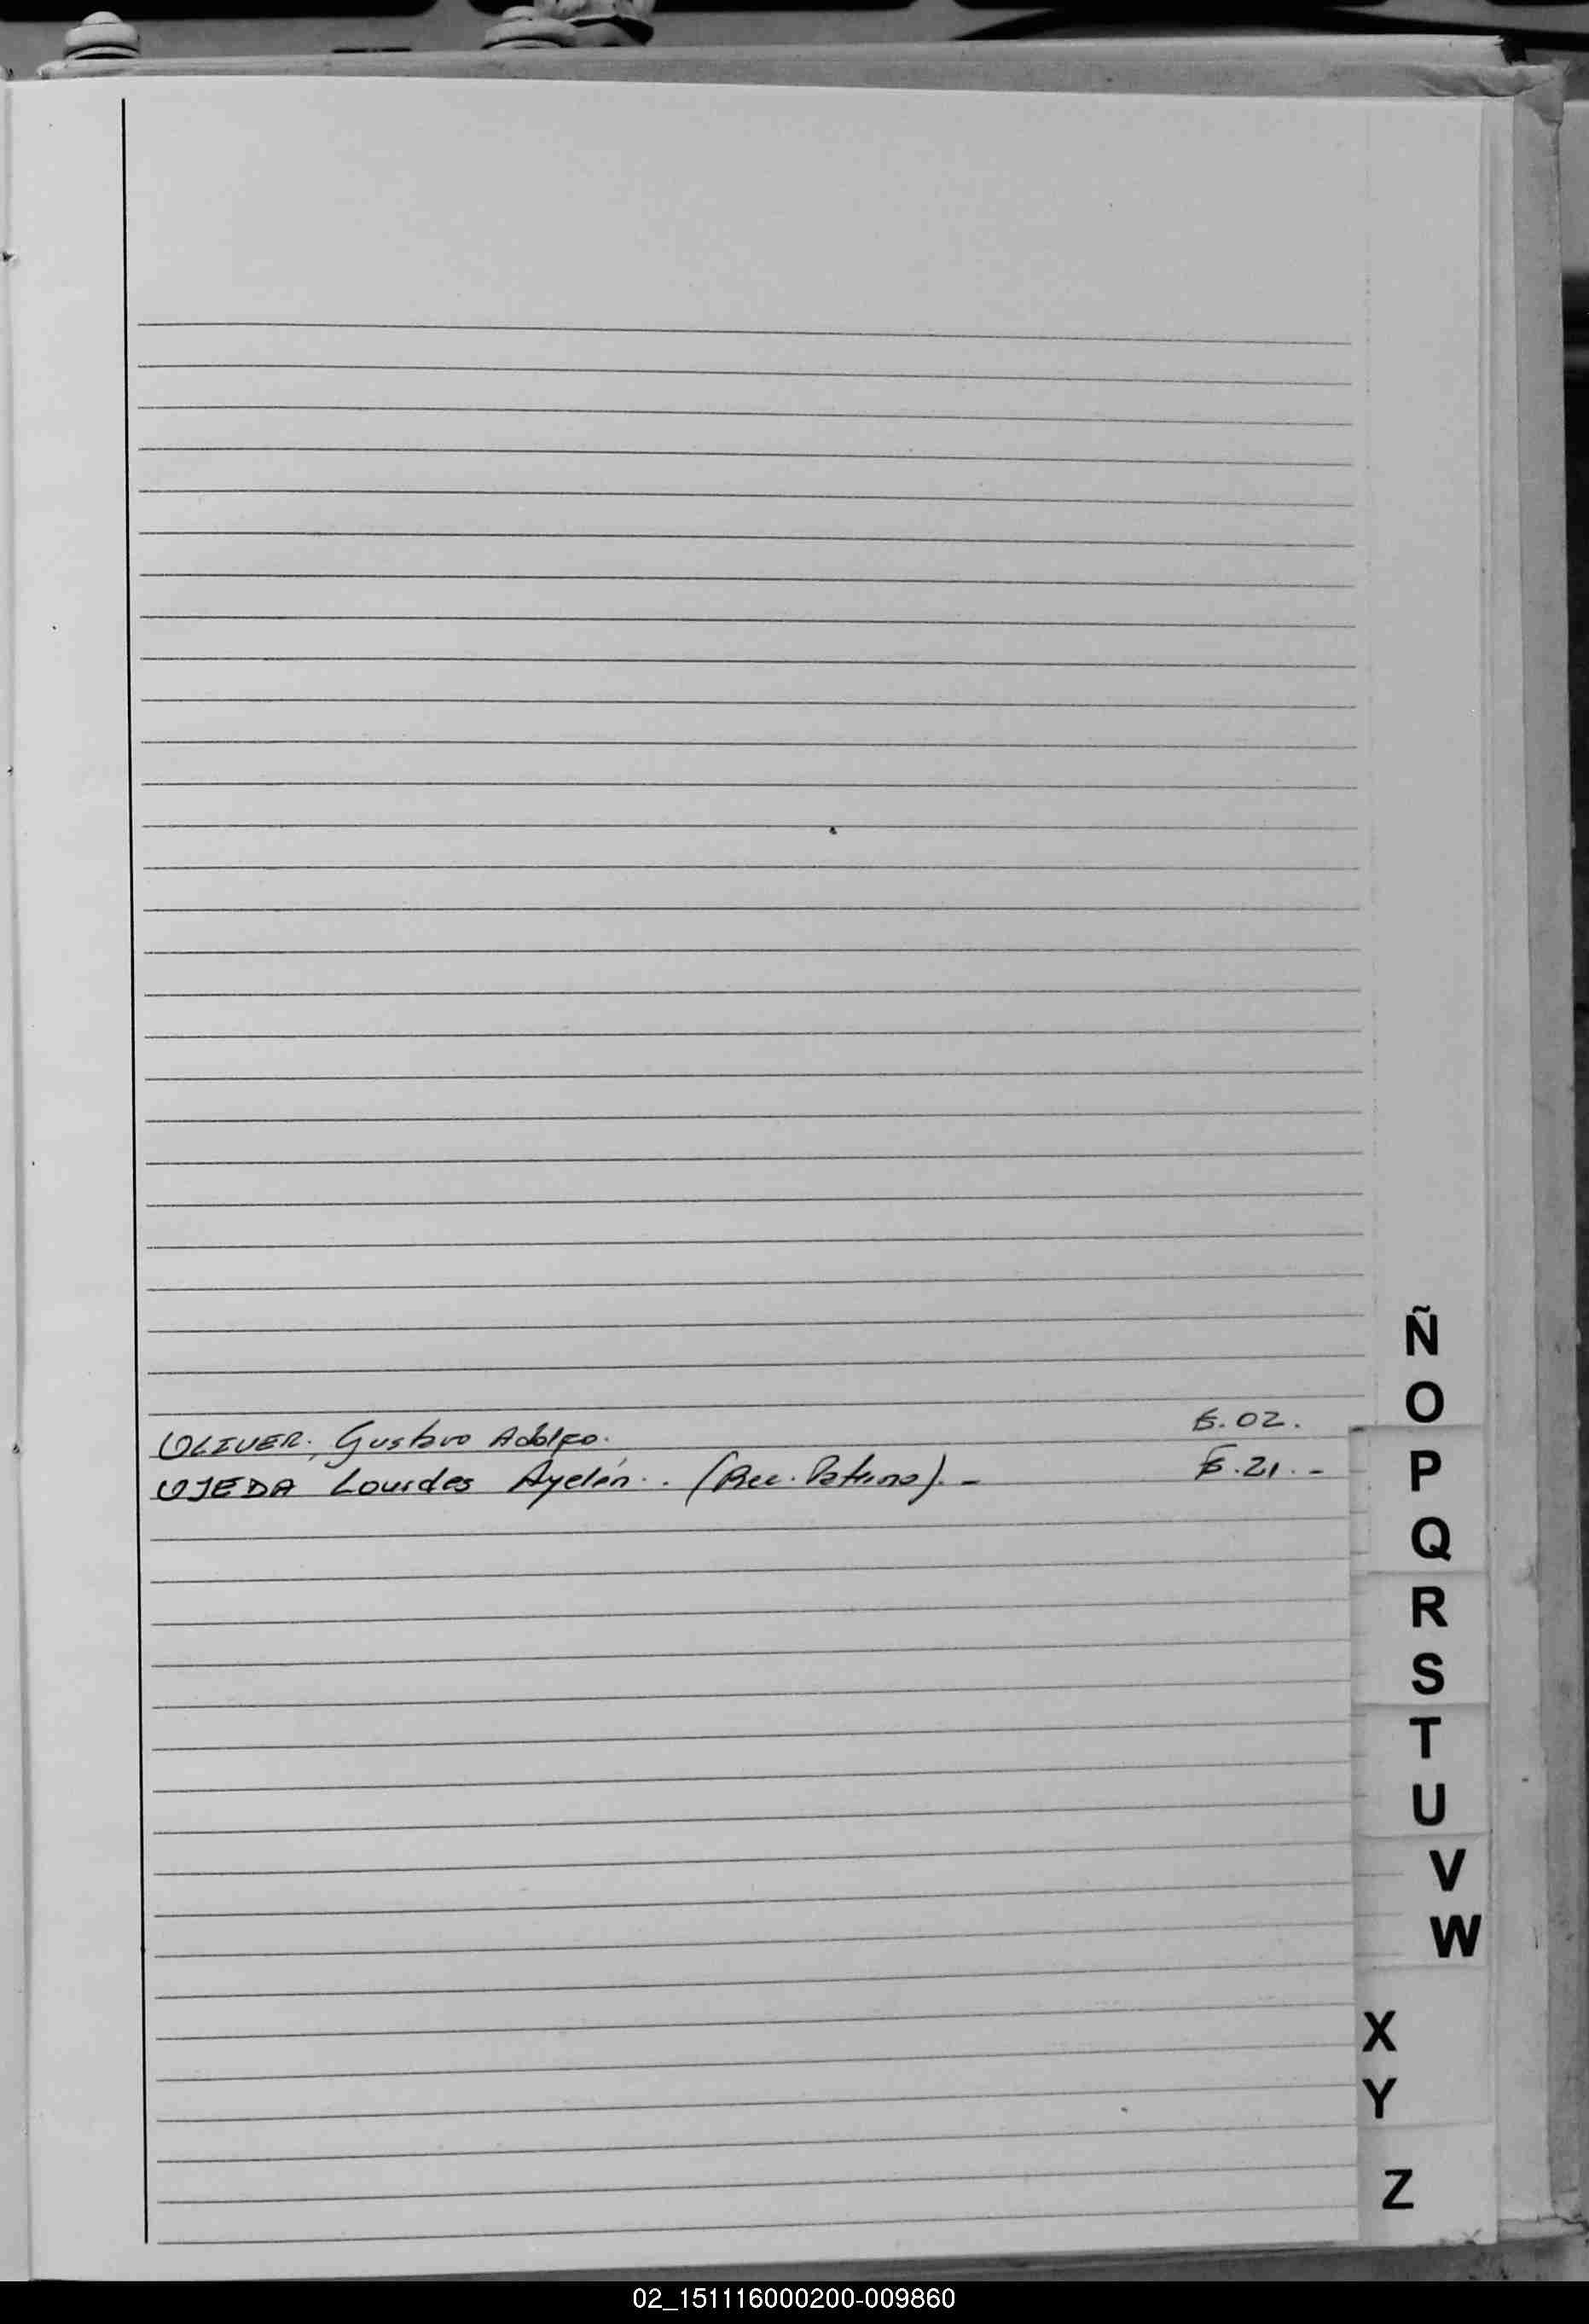 OLIVER, Gustavo Adolfo. F. 02.
OJEDA Lourdes Ayelén. . (Rec. Paterno). - F. 21. -
Ñ
O
P
Q
R
S
T
U
V
W
X
Y
Z
02_151116000200-009860